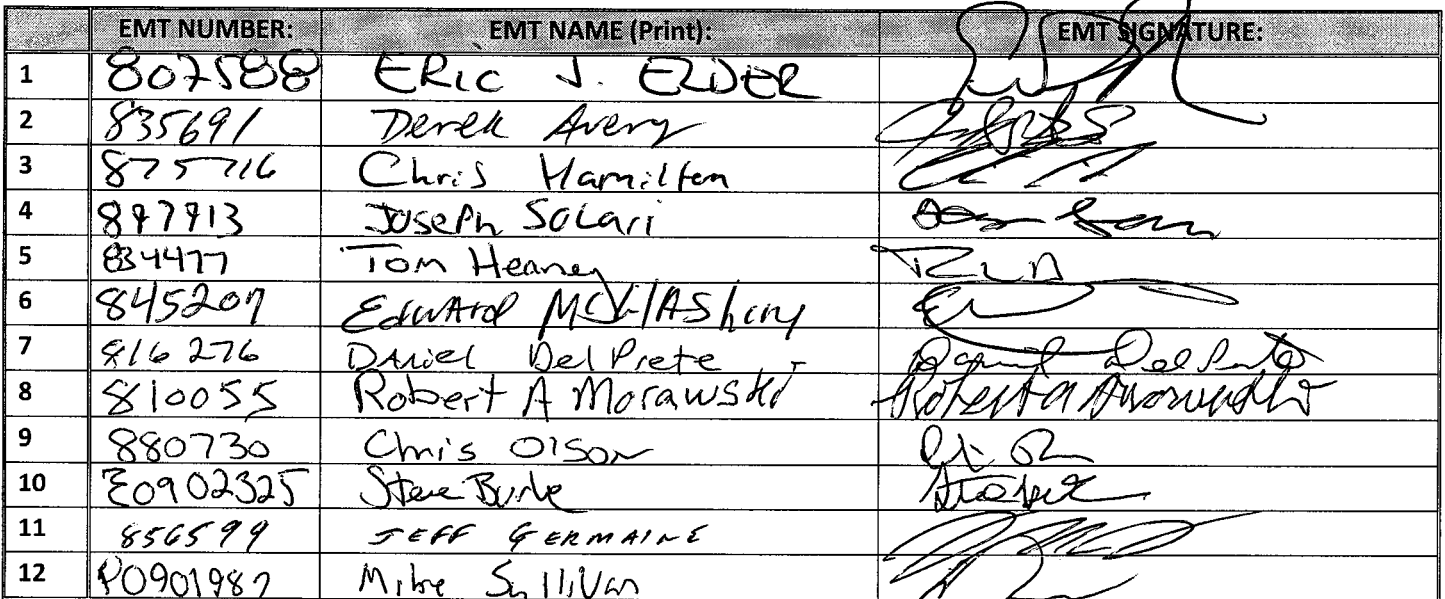 EMT NUMBER: EMT NAME (Print): EMT SIGNATURE:
1 807588 ERIC J. ELDER
2 835691 Derek Avery
3 875716 Chris Hamilton
4 877713 Joseph Solari
5 834477 Tom Heaney
6 845207 Edward
7 816276 Daniel Del Prete Daniel Del Prete
8 810055 Robert A Morawski Robert A Morawski
9 880730 Chris Olson
10 E0902325 Steve Burke
11 856599 JEFF GERMAINE
12 P0901987 Mike Sullivan